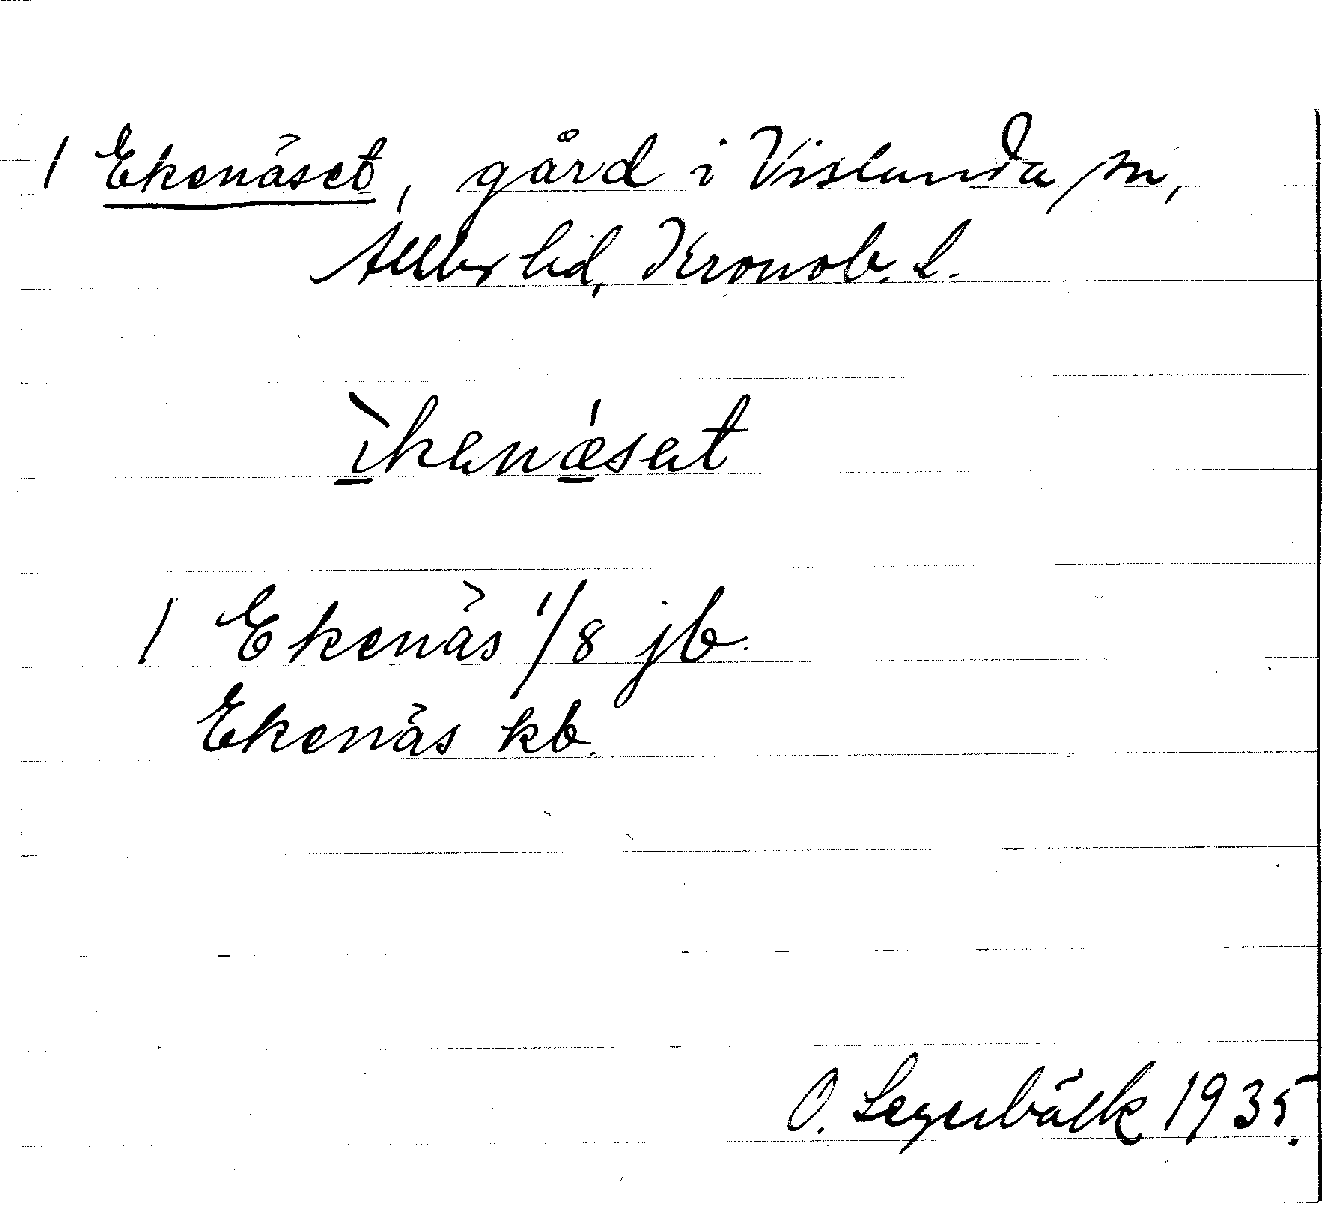 1 Ekenäset, gård i Vislanda sn,
Allbo hd, Kronob. l.
ìkenǽset
1 Ekenäs 1/8 jb.
Ekenäs kb.
O. Legerbäck 1935.